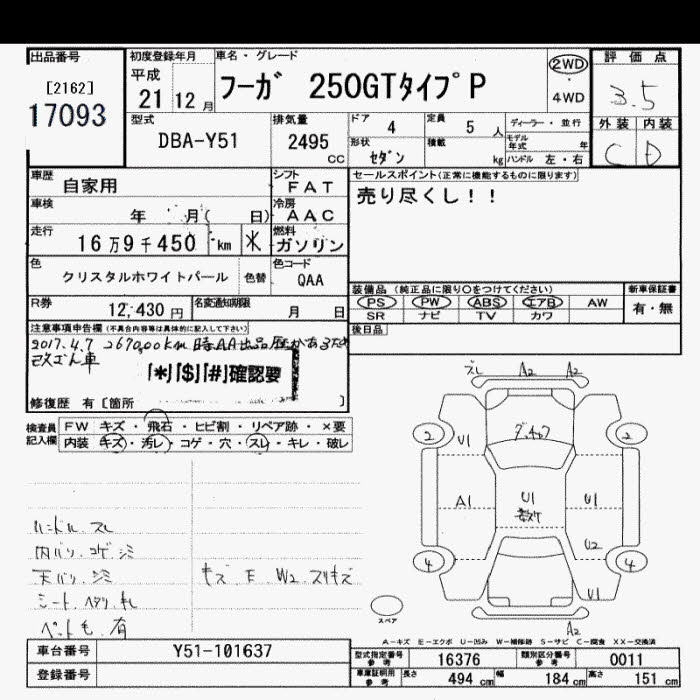 出品番号
[2162]
17093
初度登録年月
平成
21 12 月
車名・グレード
フーガ 250GTタイプP
2WD
4WD
評価点
3.5
外装 内装
C D
型式
DBA-Y51
排気量
2495
cc
ドア
4
定員
5 人
形状
セダン
積載
kg
ディーラー・並行
モデル年式 年
ハンドル 左・右
車歴
自家用
シフト
FAT
車検
年 月( 日)
冷房
AAC
走行
16万9千450 km *
燃料
ガソリン
色
クリスタルホワイトパール
色替
色コード
QAA
R券
12,430 円
名変通知期限
月 日
セールスポイント(正常に機能するものに限ります)
売り尽くし!!
装備品 (純正品に限り○をつけてください)
PS PW ABS エアB AW
SR ナビ TV カワ
新車保証書
有・無
後日品
注意事項申告欄(不具合内容等は具体的に記入して下さい)
改ざん車
「*」「$」「#」確認要
修復歴 有〔箇所 〕
検査員記入欄
FW キズ・飛石・ヒビ割・リペア跡・×要
内装 キズ・汚レ・コゲ・穴・スレ・キレ・破レ
ハンドル スレ
内バリ コゲ シミ
天バリ シミ
シート ヘタリ キレ
ペット毛 有
キズ E W2 スリキズ
スレ A2 A2
2 2
U1
A1
U1
U1
U2
U1
4 4
A2
スペア
A-キズ E-エクボ U-凹み W-補修跡 S-サビ C-腐食 XX-交換済
車台番号
Y51-101637
登録番号
型式指定番号 参考
16376
類別区分番号 参考
0011
車庫証明用 参考
長さ 494 cm 幅 184 cm 高さ 151 cm